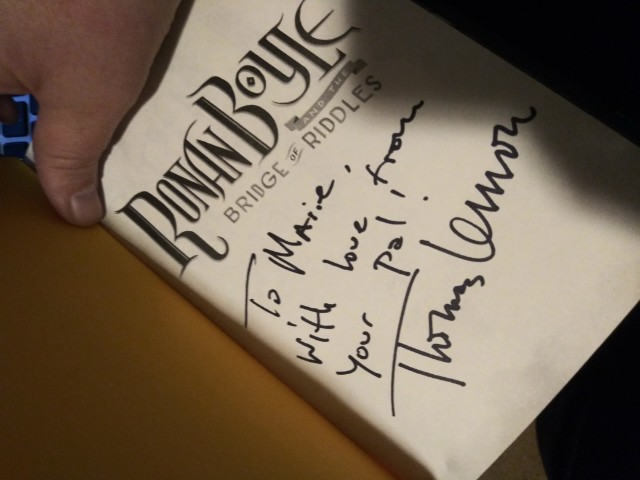 RONAN BOYLE
AND THE
BRIDGE OF RIDDLES
To Marie,
With Love from
Your Pal,
Thomas Lennon